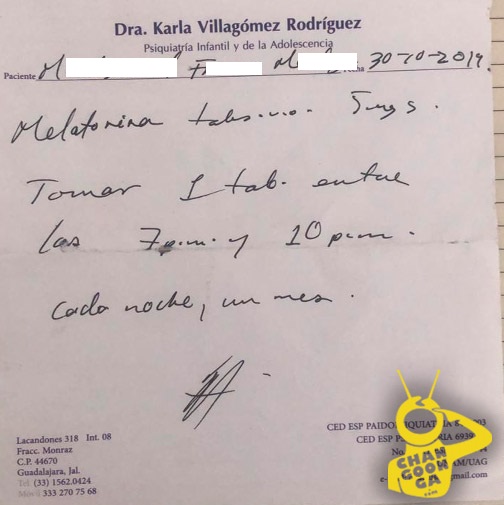 Dra. Karla Villagómez Rodríguez
Psiquiatría Infantil y de la Adolescencia
Paciente M F M 30-10-2019.
Melatonina tabs. v.o. 5mgs.
Tomar 1 tab. entre
las 7p.m. y 10 p.m.
cada noche, un mes.
Lacandones 318 Int. 08
Fracc. Monraz
C.P. 44670
Guadalajara, Jal.
Tel: (33) 1562.0424
Móvil 333 270 75 68
CED ESP PAIDOPSIQUIATRIA
CED ESP
AM/UAG
gmail.com
CHAN
GOON
GA
.com